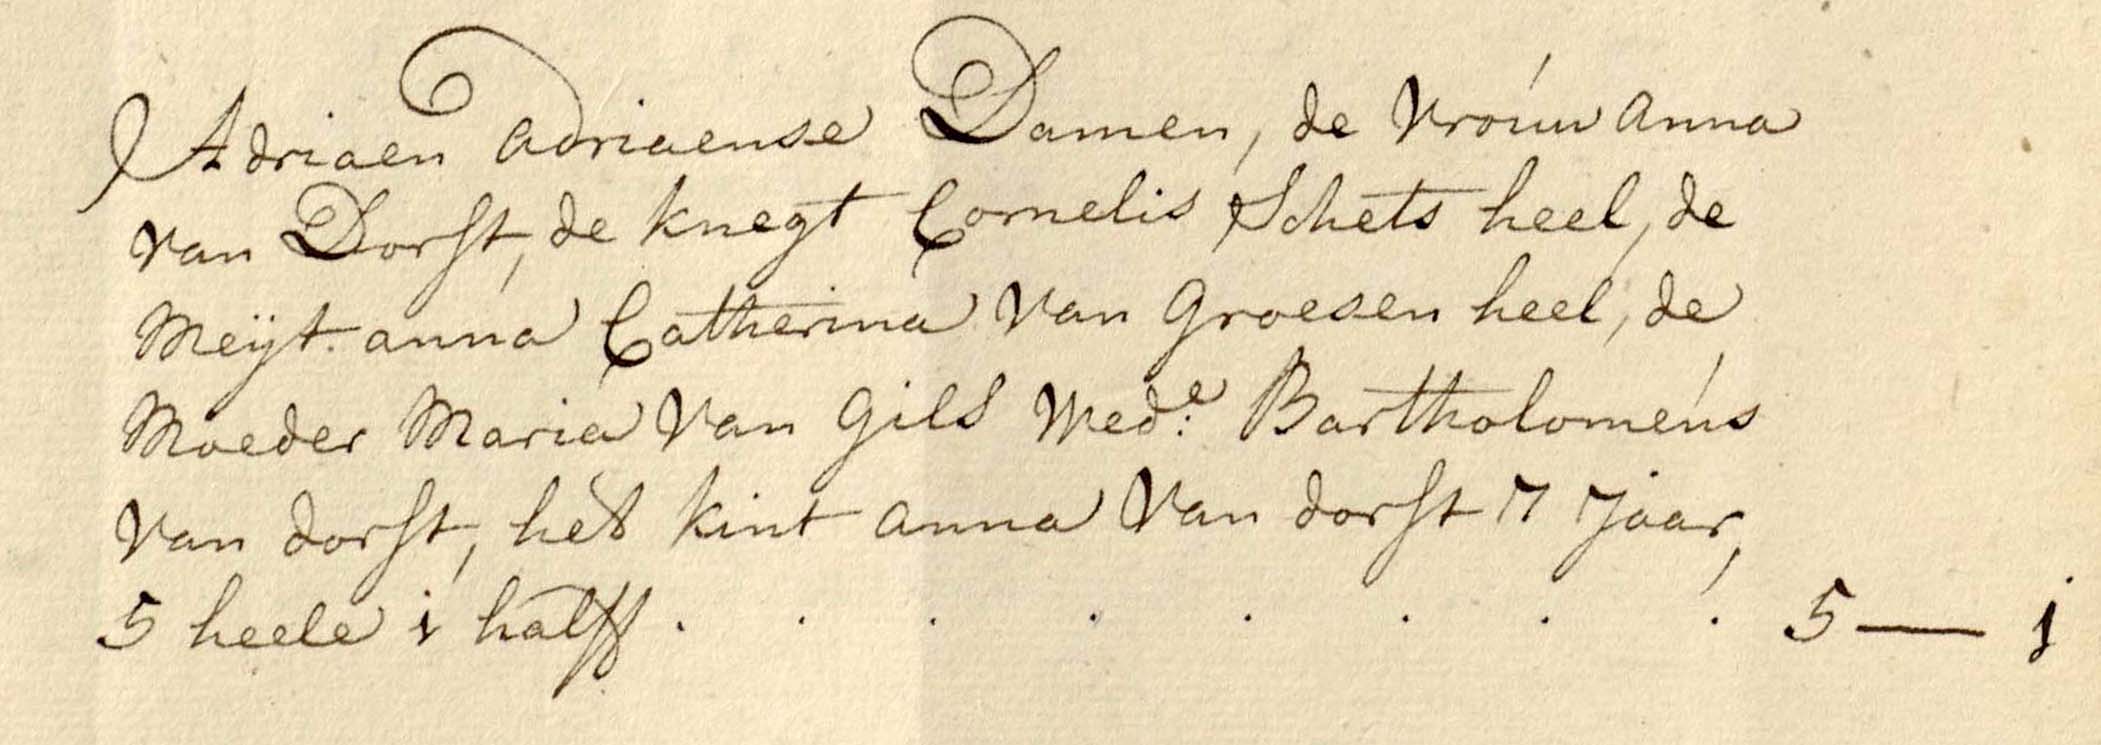 Adriaen adriaense Damen, de vrouw anna
van Dorst, de knegt Cornelis Schets heel, de
Meijt. anna Catherina van Groesen heel, de
Moeder Maria van Gils Wed:e Bartholomeus
van dorst, het kint anna van dorst 7 Jaar,
5 heele i halff . . . . . . . . 5 — j